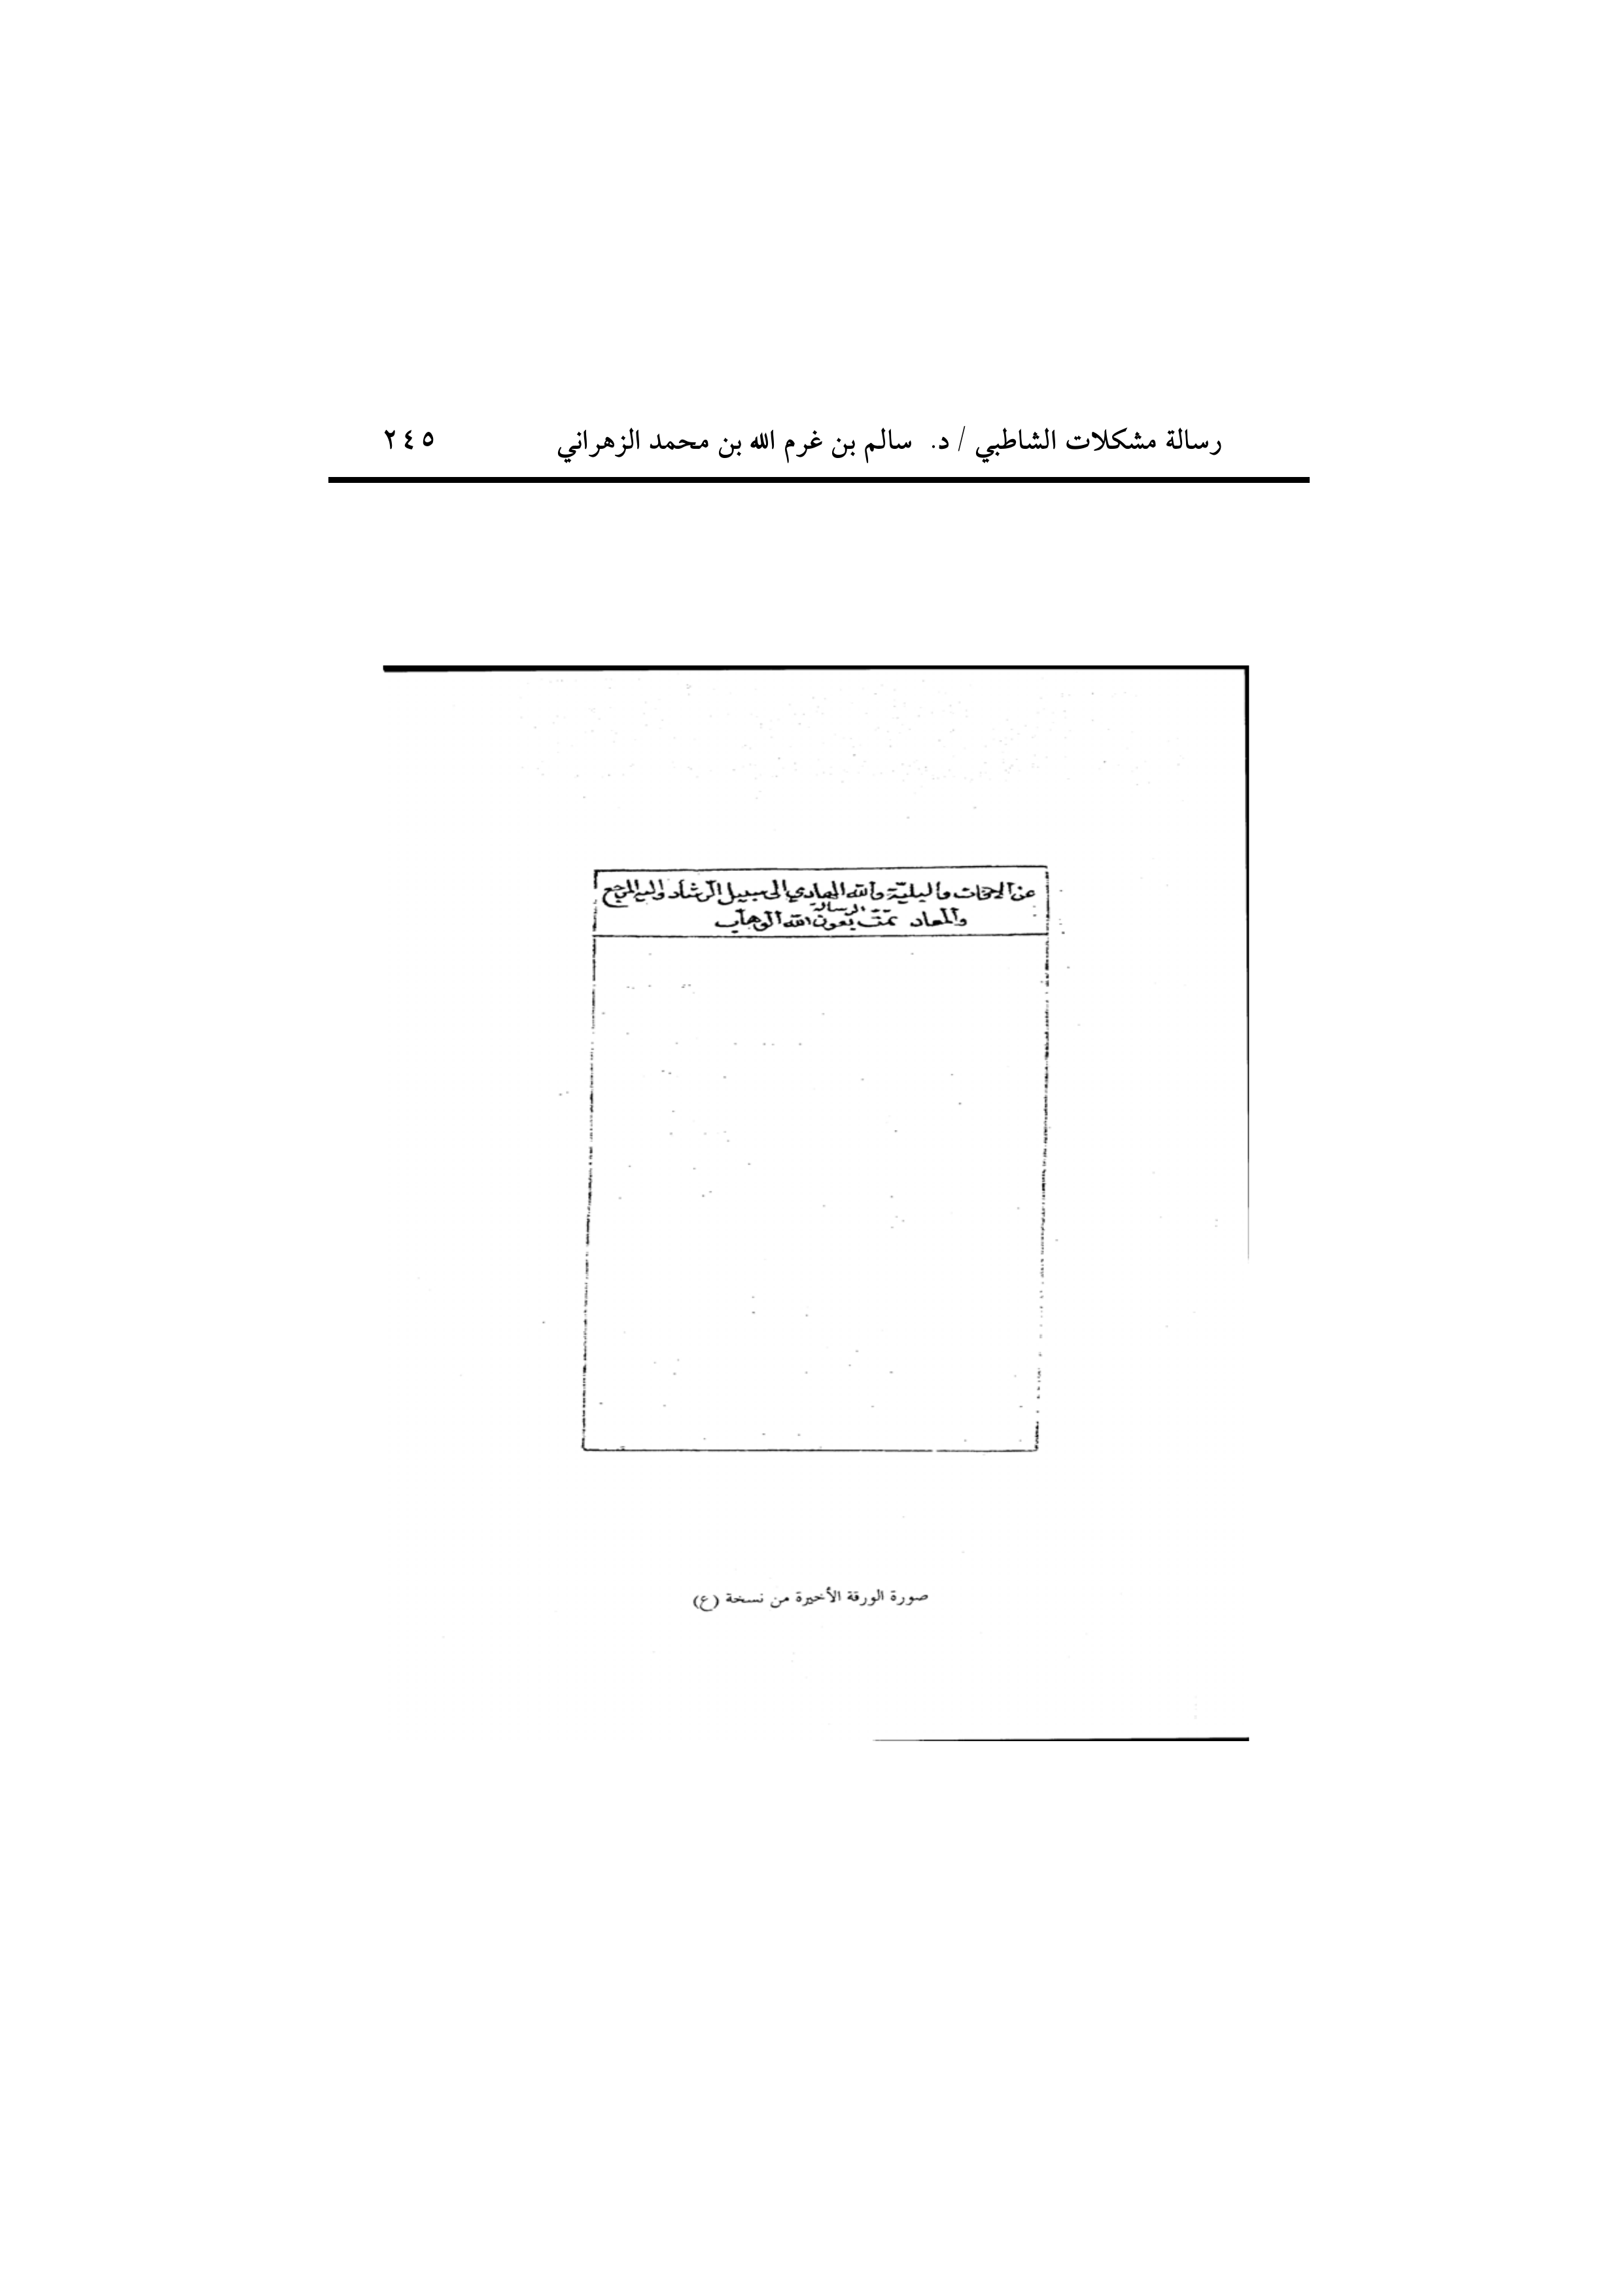 رسالة مشكلات الشاطبي / د. سالم بن غرم الله بن محمد الزهراني ٢٤٥
عن الآفات والبليّة والله الهادي الى سبيل الرشاد واليه المرجع
والمعاد تمّت الرسالة بعون الله الوهاب
صورة الورقة الأخيرة من نسخة (ع)